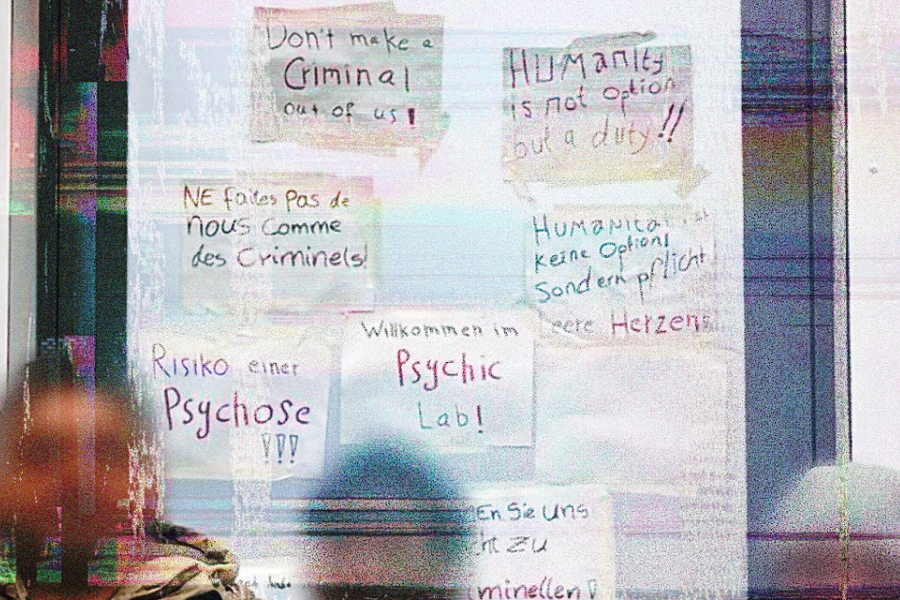 Don't make a
Criminal
out of us!
Humanity
is not option
but a duty!!
NE faites pas de
nous comme
des Criminels!
keine Option!
Sondern pflicht
Herzens
Willkommen im
Psychic
Lab!
Risiko einer
Psychose
!!!
En Sie uns
ht zu
minellen!